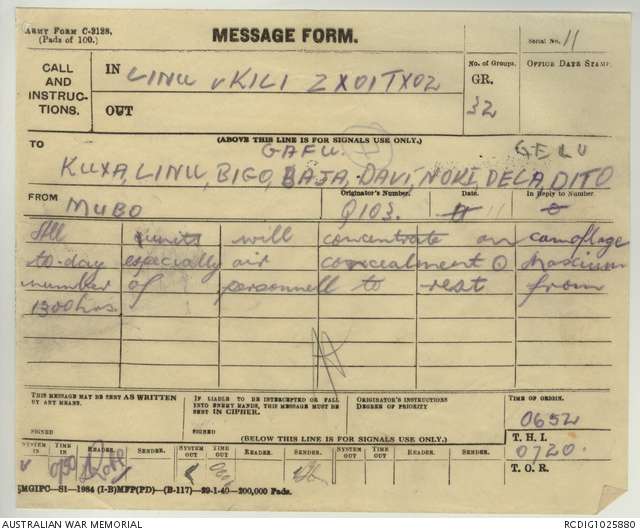 ARMY FORM C-2128.
(Pads of 100.)
MESSAGE FORM.
Serial No. 11
CALL AND INSTRUCTIONS.
IN LINU v KILI ZX01TX02
OUT
No. of Groups.
GR.
32
OFFICE DATE STAMP.
(ABOVE THIS LINE IS FOR SIGNALS USE ONLY.)
TO
GAFU GELU
KUXA, LINU, BIGO, BAJA, DAVI, NOKI, DELA, DITO
FROM MUBO
Originator's Number. Q103.
Date. 11
In Reply to Number.
All units will concentrate on camoflage
to-day especially air concealment Maxium
number of personnell to rest from
1300 hrs.
THIS MESSAGE MAY BE SENT AS WRITTEN
BY ANY MEANS.
SIGNED
IF LIABLE TO BE INTERCEPTED OR FALL
INTO ENEMY HANDS, THIS MESSAGE MUST BE
SENT IN CIPHER.
SIGNED
ORIGINATOR'S INSTRUCTIONS
DEGREE OF PRIORITY
TIME OF ORIGIN.
0652
(BELOW THIS LINE IS FOR SIGNALS USE ONLY.)
T. H. I.
0720.
SYSTEM IN v
TIME IN 0750
READER.
SENDER.
SYSTEM OUT
TIME OUT
READER.
SENDER.
SYSTEM OUT
TIME OUT
READER.
SENDER.
T. O. R.
MGIPC—S1—1984 (I-B)MFP(PD)—(B-117)—29-1-40—200,000 Pads.
AUSTRALIAN WAR MEMORIAL
RCDIG1025880